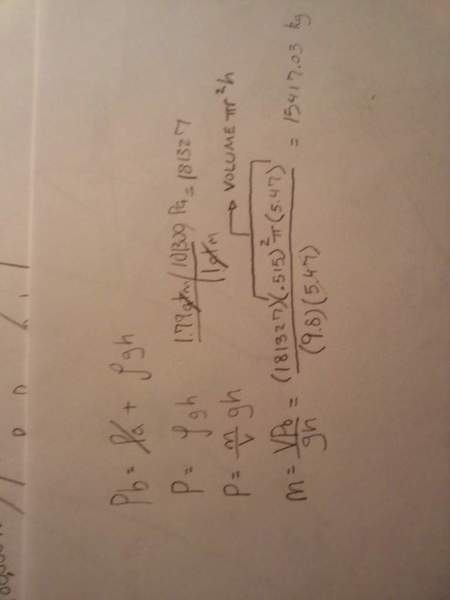 P_b = P_a + ρgh
P = ρgh
1.79 atm / 101300 Pa = 181327
1 atm
P = m/V gh
→ VOLUME πr²h
m = VP_b/gh = (181327)(.515)² π (5.47)/(9.8)(5.47) = 15417.03 kg